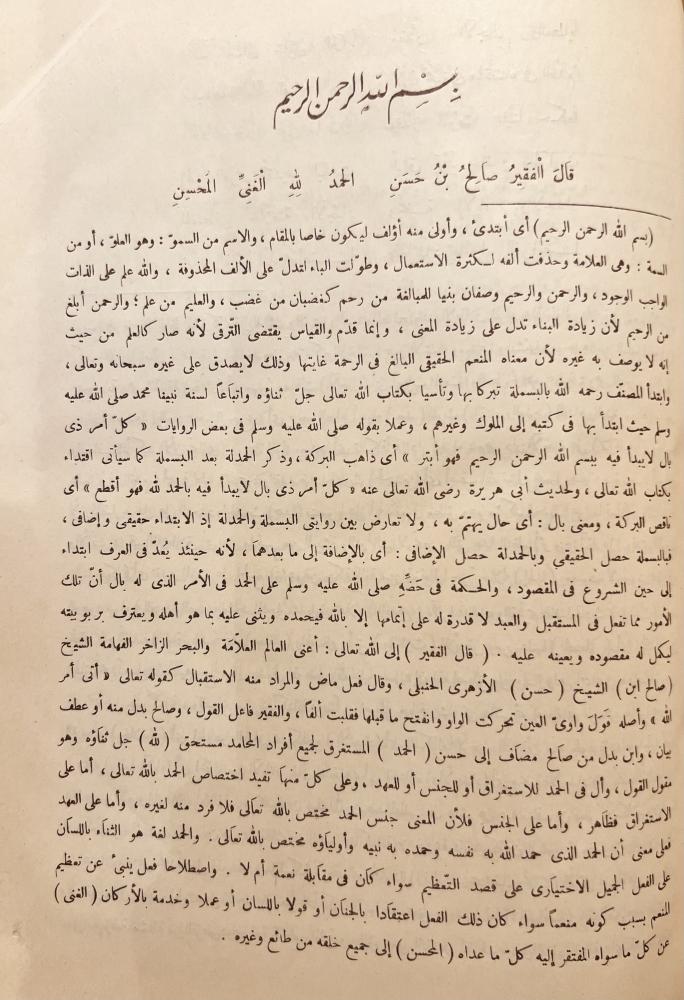 بسم الله الرحمن الرحيم
قَالَ الْفَقِيرُ صَالِحُ بْنُ حَسَنِ الحمدُ لِلهِ الْغَنِيِّ الْمُحْسِنِ
(بسم الله الرحمن الرحيم) أى أبتدئ ، وأولى منه أؤلف ليكون خاصا بالمقام ، والاسم من السموّ : وهو العلوّ ، أو من
السمة : وهى العلامة وحذفت ألفه لكثرة الاستعمال ، وطوّلت الباء لتدلّ على الألف المحذوفة ، والله علم على الذات
الواجب الوجود ، والرحمن والرحيم وصفان بنيا للمبالغة من رحم كغضبان من غضب ، والعليم من علم ؛ والرحمن أبلغ
من الرحيم لأن زيادة البناء تدل على زيادة المعنى ، وإنما قدّم والقياس يقتضى الترقى لأنه صار كالعلم من حيث
إنه لا يوصف به غيره لأن معناه المنعم الحقيقى البالغ فى الرحمة غايتها وذلك لا يصدق على غيره سبحانه وتعالى ،
وابتدأ المصنف رحمه الله بالبسملة تبركا بها وتأسيا بكتاب الله تعالى جلّ ثناؤه واتباعًا لسنة نبينا محمد صلى الله عليه
وسلم حيث ابتدأ بها فى كتبه إلى الملوك وغيرهم ، وعملا بقوله صلى الله عليه وسلم فى بعض الروايات « كلّ أمر ذى
بال لا يبدأ فيه ببسم الله الرحمن الرحيم فهو أبتر » أى ذاهب البركة ، وذكر الحمدلة بعد البسملة كما سيأتى اقتداء
بكتاب الله تعالى ، ولحديث أبى هريرة رضى الله تعالى عنه « كلّ أمر ذى بال لا يبدأ فيه بالحمد لله فهو أقطع » أى
ناقص البركة ، ومعنى بال : أى حال يهتمّ به ، ولا تعارض بين روايتى البسملة والحمدلة إذ الابتداء حقيقى وإضافى ،
فبالبسملة حصل الحقيقى وبالحمدلة حصل الإضافى : أى بالإضافة إلى ما بعدهما ، لأنه حينئذ يُعدّ فى العرف ابتداء
إلى حين الشروع فى المقصود ، والحكمة فى حَضِّهِ صلى الله عليه وسلم على الحمد فى الأمر الذى له بال أنّ تلك
الأمور مما تفعل فى المستقبل والعبد لا قدرة له على إتمامها إلا بالله فيحمده ويثنى عليه بما هو أهله ويعترف بربوبيته
ليكمل له مقصوده ويعينه عليه . ( قال الفقير ) إلى الله تعالى : أعنى العالم العلاّمة والبحر الزاخر الفهامة الشيخ
( صالح ابن ) الشيخ ( حسن ) الأزهرى الحنبلى ، وقال فعل ماض والمراد منه الاستقبال كقوله تعالى « أتى أمر
الله » وأصله قَوَلَ واوىّ العين تحركت الواو وانفتح ما قبلها فقلبت ألفًا ، والفقير فاعل القول ، وصالح بدل منه أو عطف
بيان ، وابن بدل من صالح مضاف إلى حسن ( الحمد ) المستغرق لجميع أفراد المحامد مستحق ( لله ) جل ثناؤه وهو
مقول القول ، وأل فى الحمد للاستغراق أو للجنس أو للعهد ، وعلى كلّ منها تفيد اختصاص الحمد بالله تعالى ، أما على
الاستغراق فظاهر ، وأما على الجنس فلأن المعنى جنس الحمد مختص بالله تعالى فلا فرد منه لغيره ، وأما على العهد
فعلى معنى أن الحمد الذى حمد الله به نفسه وحمده به نبيه وأولياؤه مختص بالله تعالى . والحمد لغة هو الثناء باللسان
على الفعل الجميل الاختيارى على قصد التّعظيم سواء كان فى مقابلة نعمة أم لا . واصطلاحا فعل ينبئ عن تعظيم
للمنعم بسبب كونه منعمًا سواء كان ذلك الفعل اعتقادا بالجنان أو قولا باللسان أو عملا وخدمة بالأركان ( الغنى )
عن كلّ ما سواه المفتقر إليه كلّ ما عداه ( المحسن ) إلى جميع خلقه من طائع وغيره .